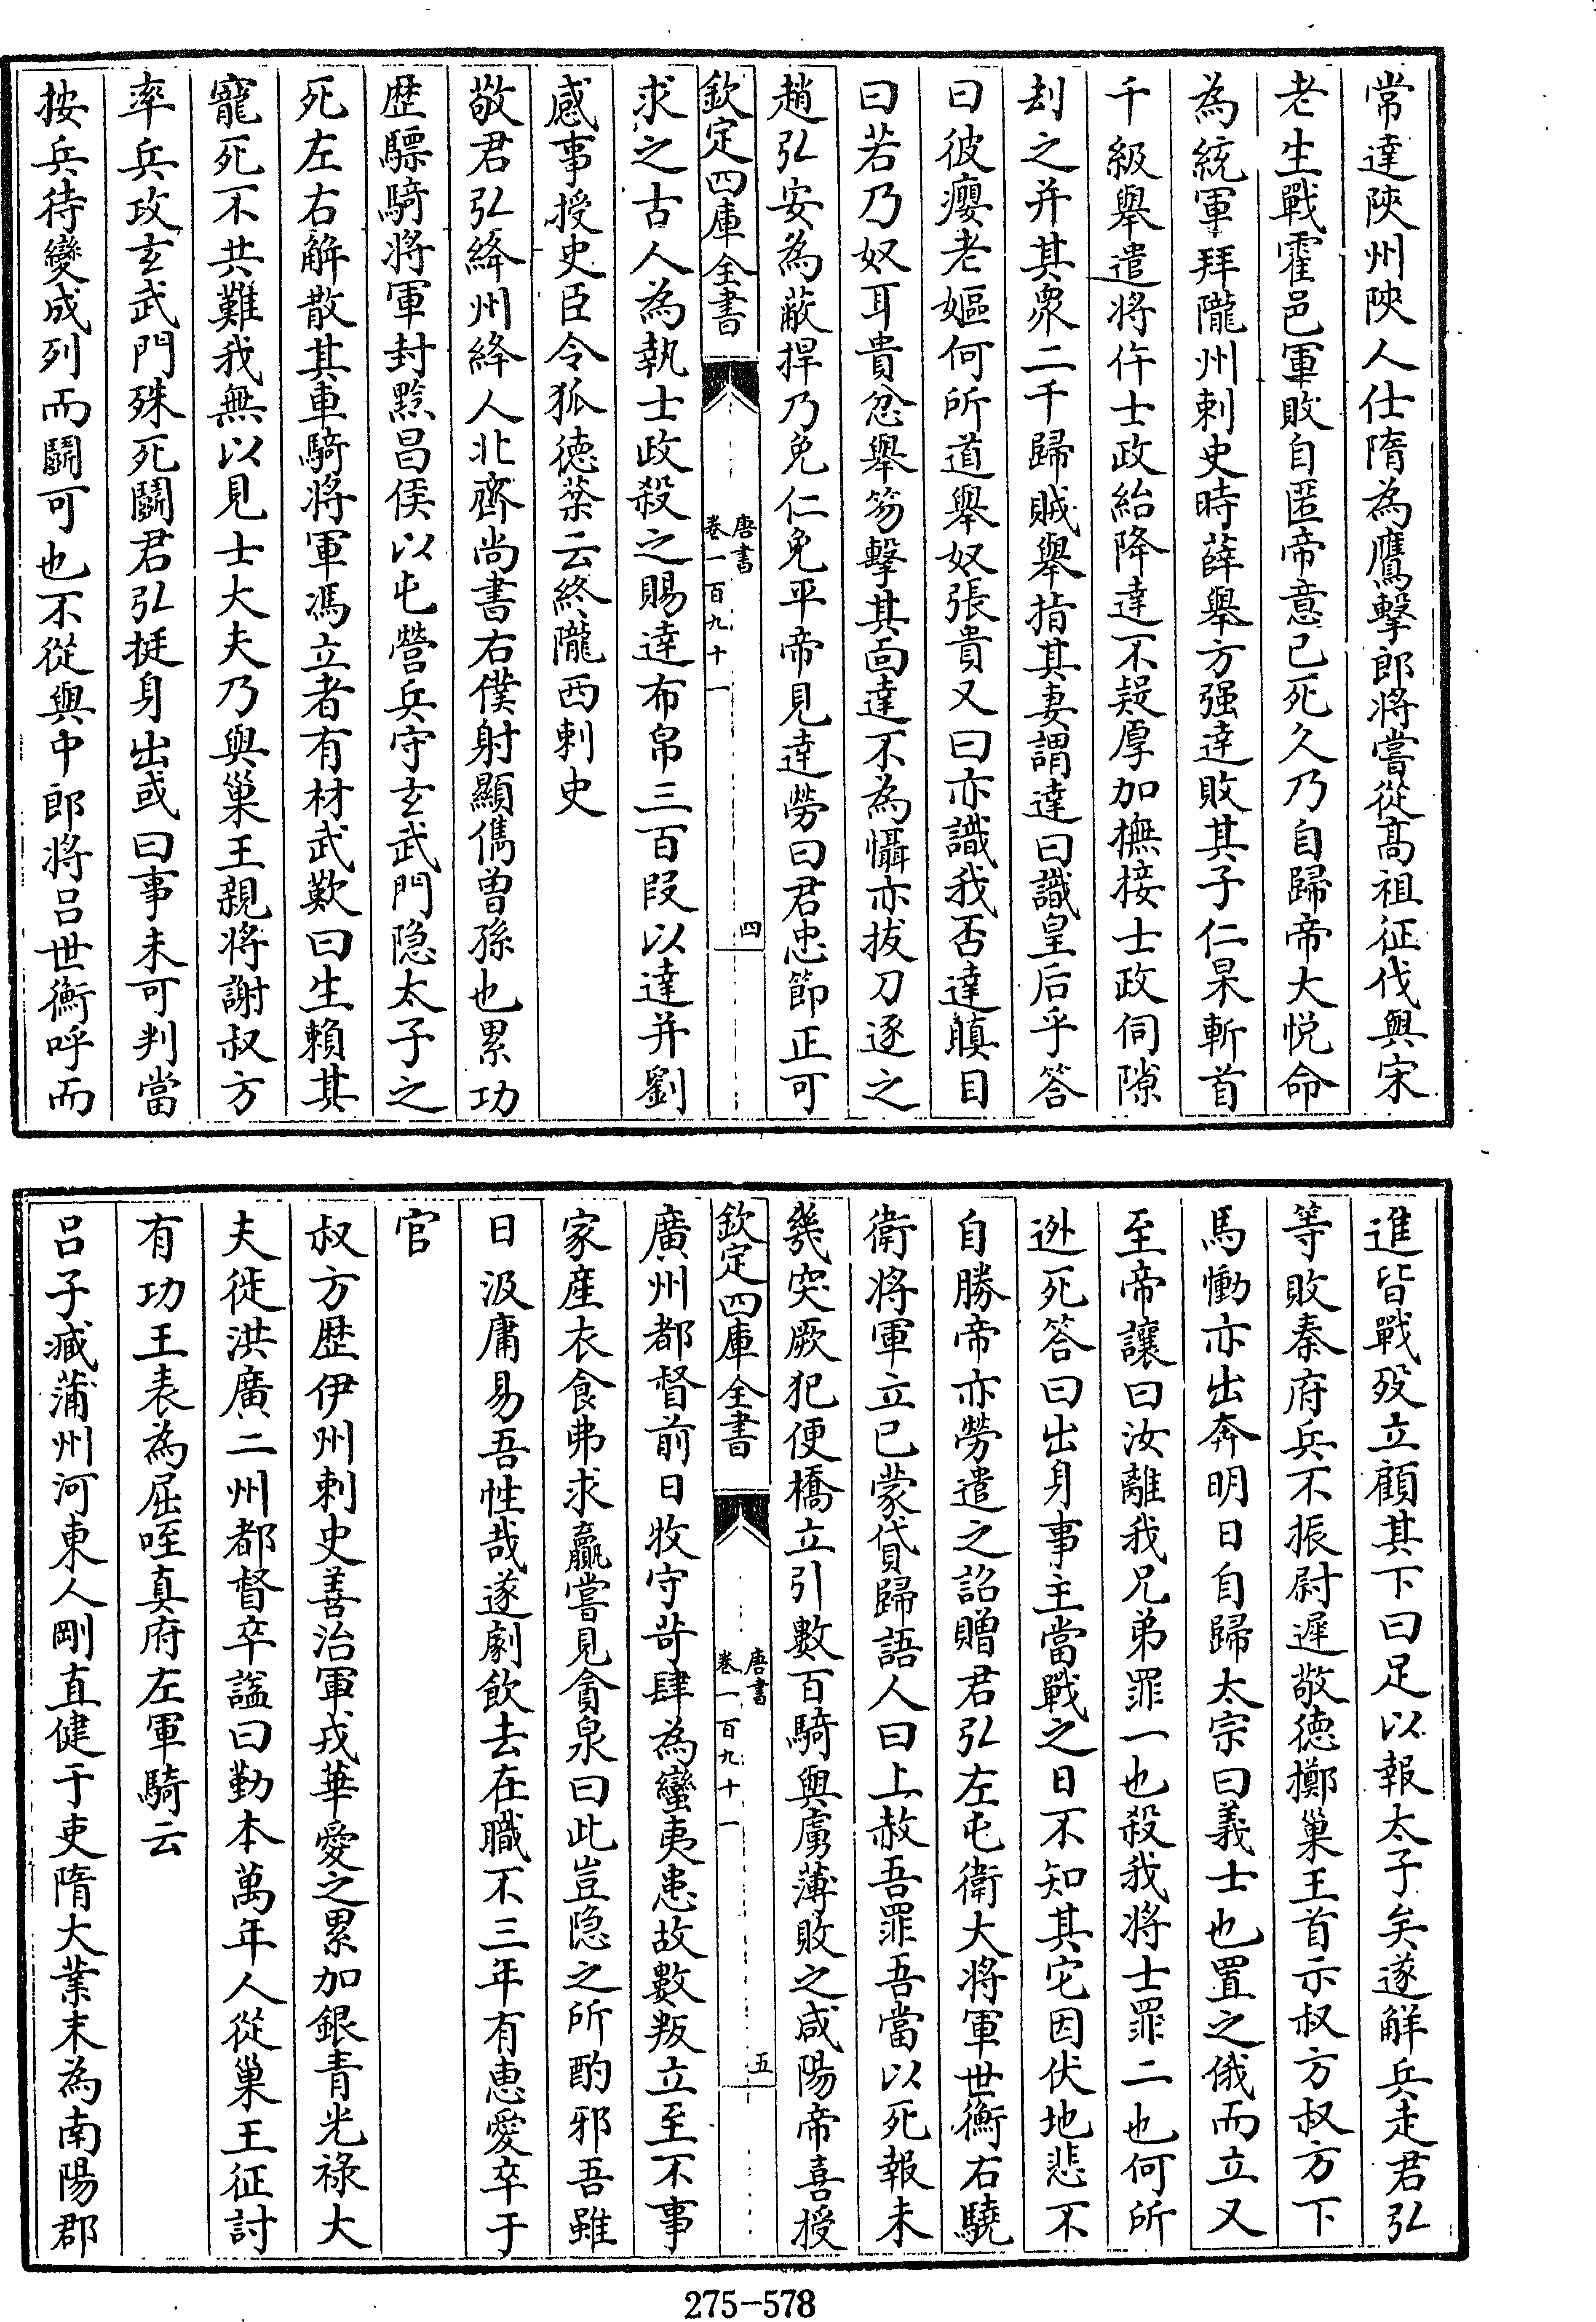 常達陜州陜人仕隋為鷹擊郎將嘗從髙祖征伐與宋
老生戰霍邑軍敗自匿帝意已死久乃自歸帝大悅命
為統軍拜隴州刺史時薛舉方强達敗其子仁杲斬首
千級舉遣將仵士政紿降達不疑厚加撫接士政伺隙
刦之并其衆二千歸賊舉指其妻謂達曰識皇后乎答
曰彼癭老嫗何所道舉奴張貴又曰亦識我否達瞋目
曰若乃奴耳貴忿舉笏擊其面達不為懾亦拔刀逐之
趙弘安為蔽捍乃免仁杲平帝見達勞曰君忠節正可
欽定四庫全書
唐書
卷一百九十一
四
求之古人為執士政殺之賜達布帛三百段以達并劉
感事授史臣令狐徳棻云終隴西刺史
敬君弘絳州絳人北齊尚書右僕射顯儁曾孫也累功
歴驃騎將軍封黙昌侯以屯營兵守玄武門隐太子之
死左右解散其車騎將軍馮立者有材武歎曰生頼其
寵死不共難我無以見士大夫乃與巢王親將謝叔方
率兵攻玄武門殊死鬭君弘挺身出或曰事未可判當
按兵待變成列而鬭可也不從與中郎將吕世衡呼而
進皆戰殁立顧其下曰足以報太子矣遂解兵走君弘
等敗秦府兵不振尉遲敬徳擲巢王首示叔方叔方下
馬慟亦出奔明日自歸太宗曰義士也置之俄而立又
至帝讓曰汝離我兄弟罪一也殺我將士罪二也何所
逃死答曰出身事主當戰之日不知其它因伏地悲不
自勝帝亦勞遣之詔贈君弘左屯衛大將軍世衡右驍
衛將軍立已蒙貸歸語人曰上赦吾罪吾當以死報未
幾突厥犯便橋立引數百騎與虜薄敗之咸陽帝喜授
欽定四庫全書
唐書
卷一百九十一
五
廣州都督前日牧守苛肆為蠻夷患故數叛立至不事
家産衣食弗求贏嘗見貪泉曰此豈隐之所酌邪吾雖
日汲庸易吾性哉遂劇飲去在職不三年有惠愛卒于
官
叔方歴伊州刺史善治軍戎華愛之累加銀青光祿大
夫徙洪廣二州都督卒諡曰勤本萬年人從巢王征討
有功王表為屈咥真府左軍騎云
吕子臧蒲州河東人剛直健于吏隋大業末為南陽郡
275-578